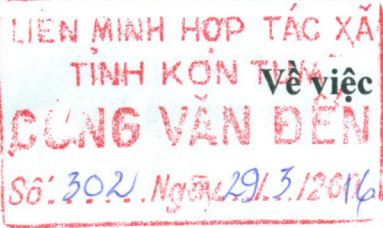 LIÊN MINH HỢP TÁC XÃ
TỈNH KON TUM
Về việc
CÔNG VĂN ĐẾN
Số: 302 Ngày 29/3/2016